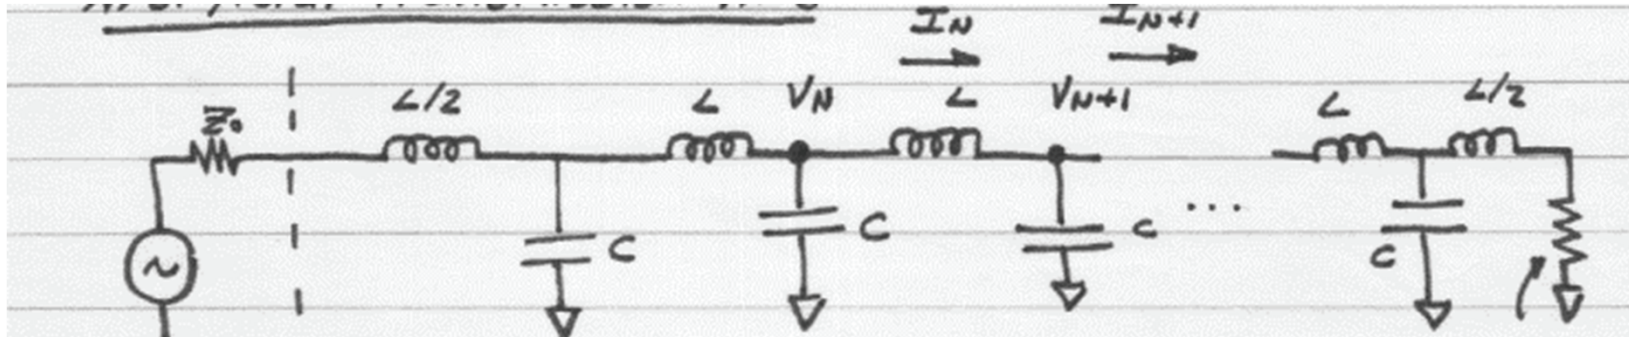 I_N I_N+1
Z₀ L/2 L V_N L V_N+1 L L/2
C C C ... C